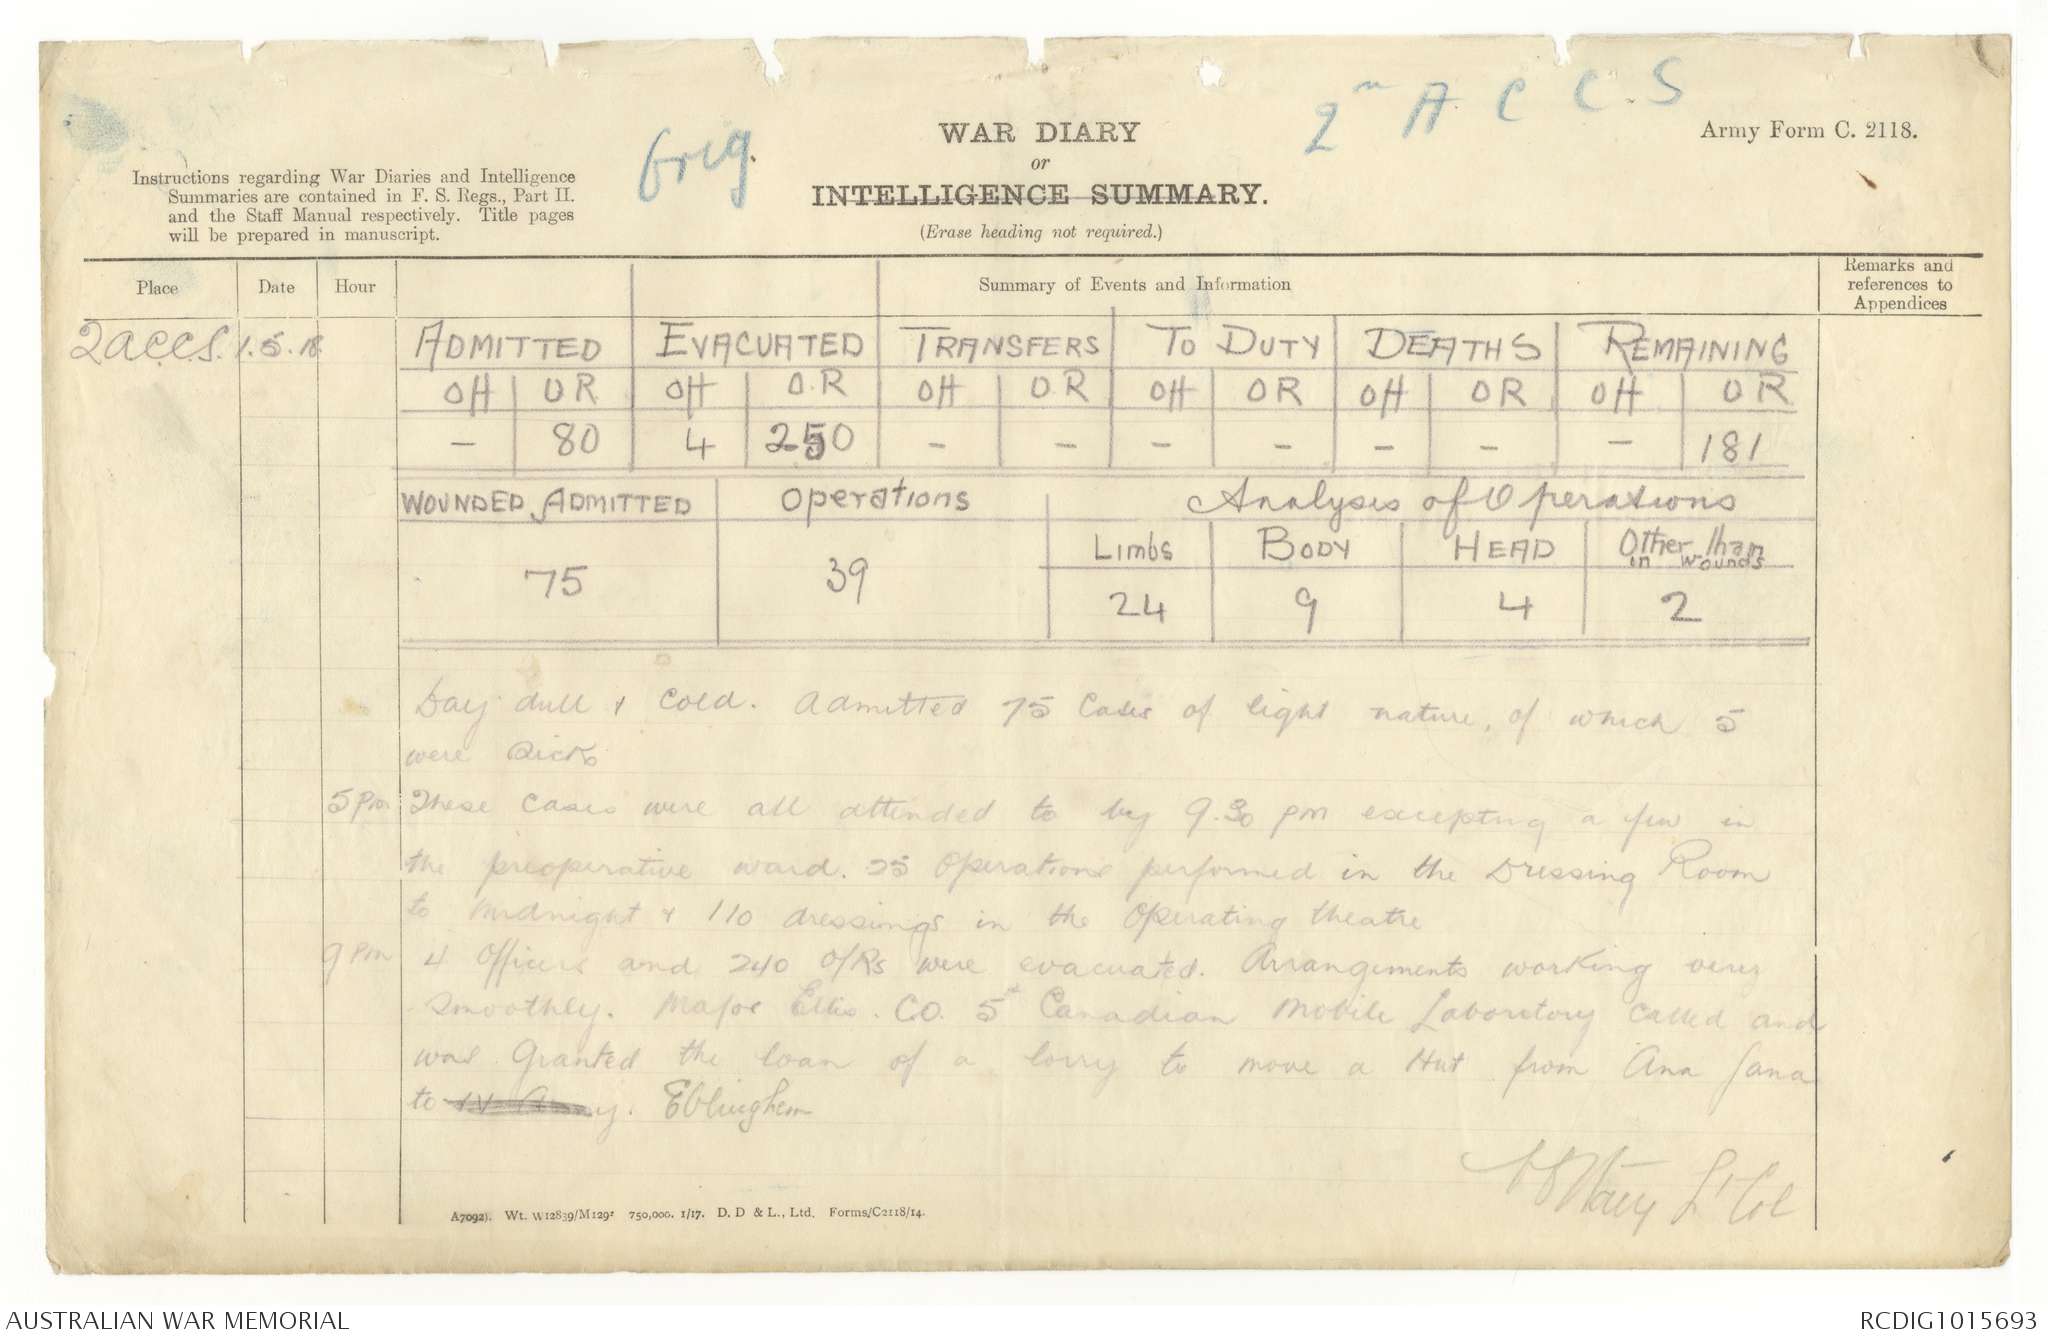 Orig.
2nd A C C S
WAR DIARY
or
INTELLIGENCE SUMMARY.
(Erase heading not required.)
Army Form C. 2118.
Instructions regarding War Diaries and Intelligence
Summaries are contained in F. S. Regs., Part II.
and the Staff Manual respectively. Title pages
will be prepared in manuscript.
Place Date Hour Summary of Events and Information Remarks and references to Appendices
2 A.C.C.S. 1.5.18 ADMITTED EVACUATED TRANSFERS TO DUTY DEATHS REMAINING
OH OR OH O.R OH OR OH OR OH OR OH OR
– 80 4 250 – – – – – – – 181
WOUNDED ADMITTED Operations Analysis of Operations
Limbs BODY HEAD Other than in wounds
75 39 24 9 4 2
Day dull & cold. Admitted 75 cases of light nature, of which 5
were sick
5 pm These cases were all attended to by 9.30 pm excepting a few in
the preoperative ward. 25 operations performed in the Dressing Room
to midnight & 110 dressings in the Operating theatre
9 pm 4 Officers and 240 O/Rs were evacuated. Arrangements working very
smoothly. Major Ellis. C.O. 5th Canadian Mobile Laboratory called and
was granted the loan of a lorry to move a Hut from Ana Jana
to IV Army. Eblinghem
Lt Col
A7092). Wt. W12839/M1292 750,000. 1/17. D. D & L., Ltd. Forms/C2118/14.
AUSTRALIAN WAR MEMORIAL
RCDIG1015693